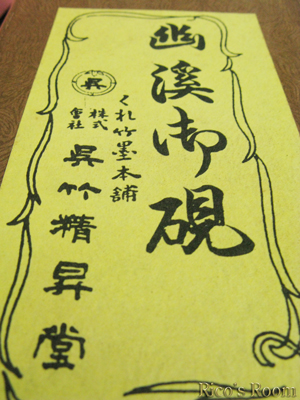 幽溪御硯
くれ竹墨本舗
呉
株式會社 呉竹精昇堂
Rico's Room